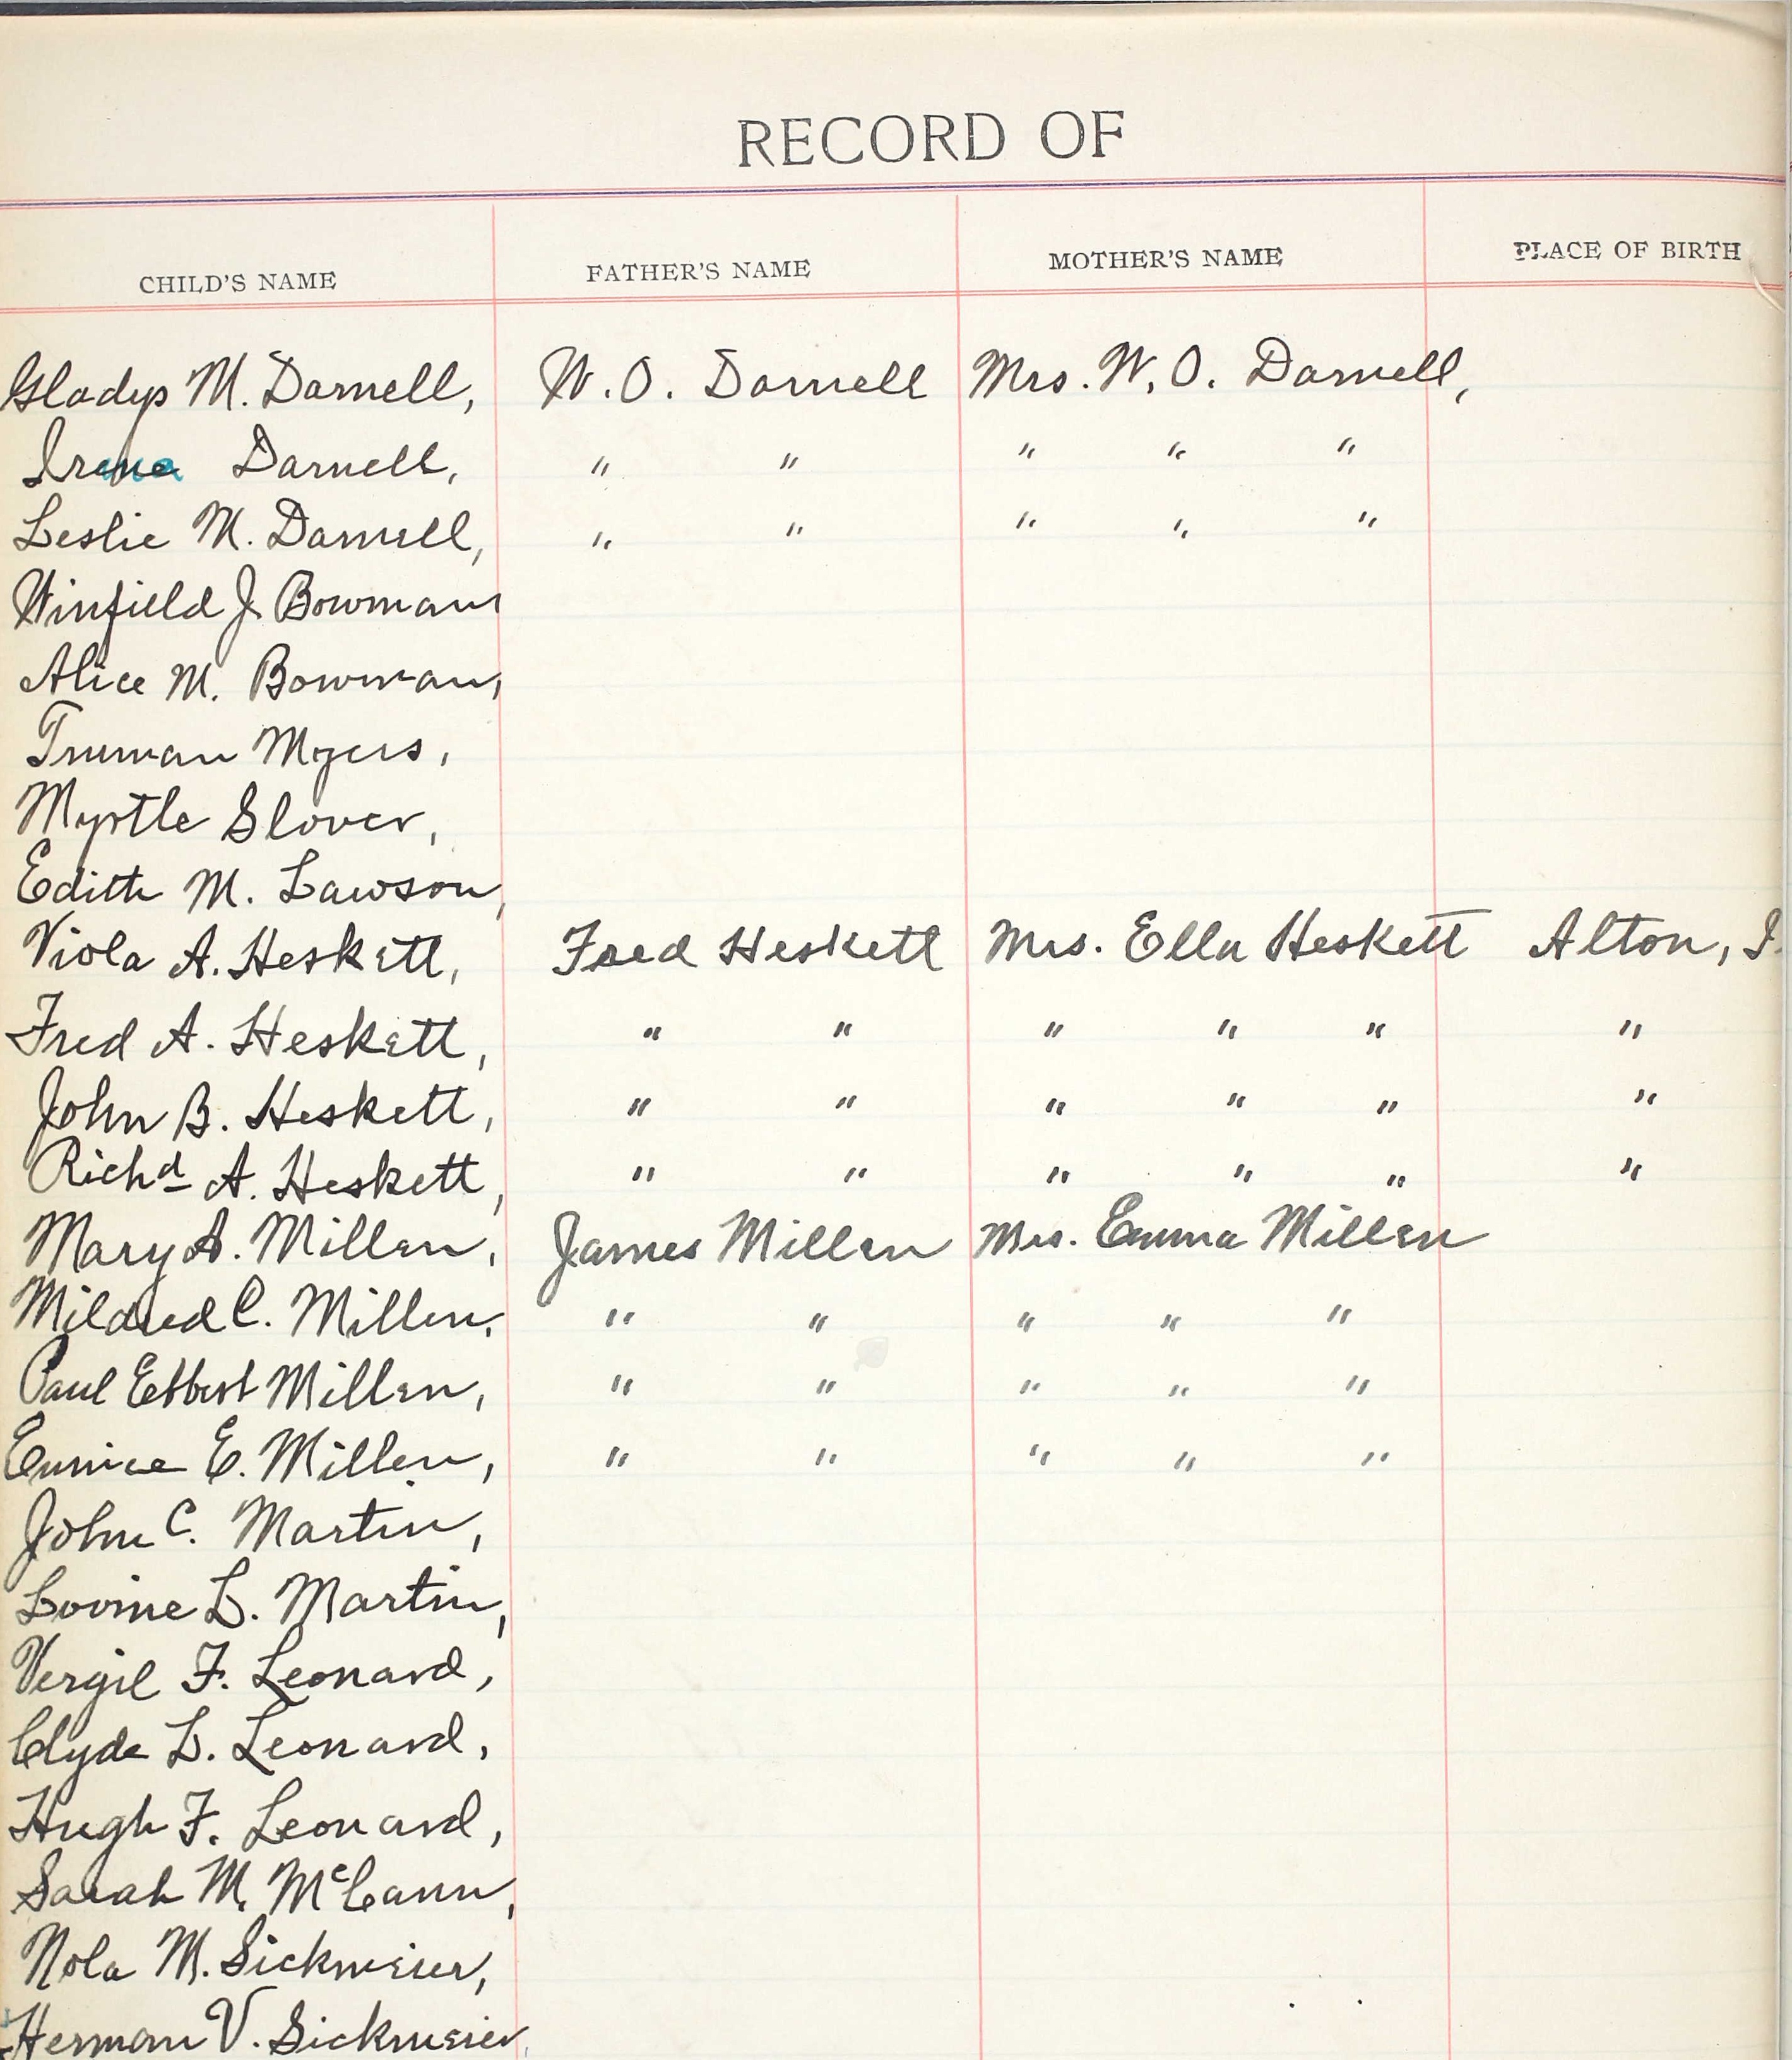 RECORD OF
CHILD'S NAME FATHER'S NAME MOTHER'S NAME PLACE OF BIRTH
Gladys M. Darnell, W. O. Darnell Mrs. W. O. Darnell,
Darnell, " " " " "
Leslie M. Darnell, " " " " "
Winfield J. Bowman
Alice M. Bowman,
Truman Myers,
Myrtle Slover,
Edith M. Lawson,
Viola A. Heskett, Fred Heskett Mrs. Ella Heskett Alton, I
Fred A. Heskett, " " " " " "
John B. Heskett, " " " " " "
Richd A. Heskett, " " " " " "
Mary A. Millen, James Millen Mrs. Emma Millen
Mildred C. Millen, " " " " "
Paul Egbert Millen, " " " " "
Eunice E. Millen, " " " " "
John C. Martin,
L. Martin,
Vergil F. Leonard,
Clyde L. Leonard,
Hugh F. Leonard,
Sarah M. McCann,
Nola M. Sickmeier,
Herman V. Sickmeier,